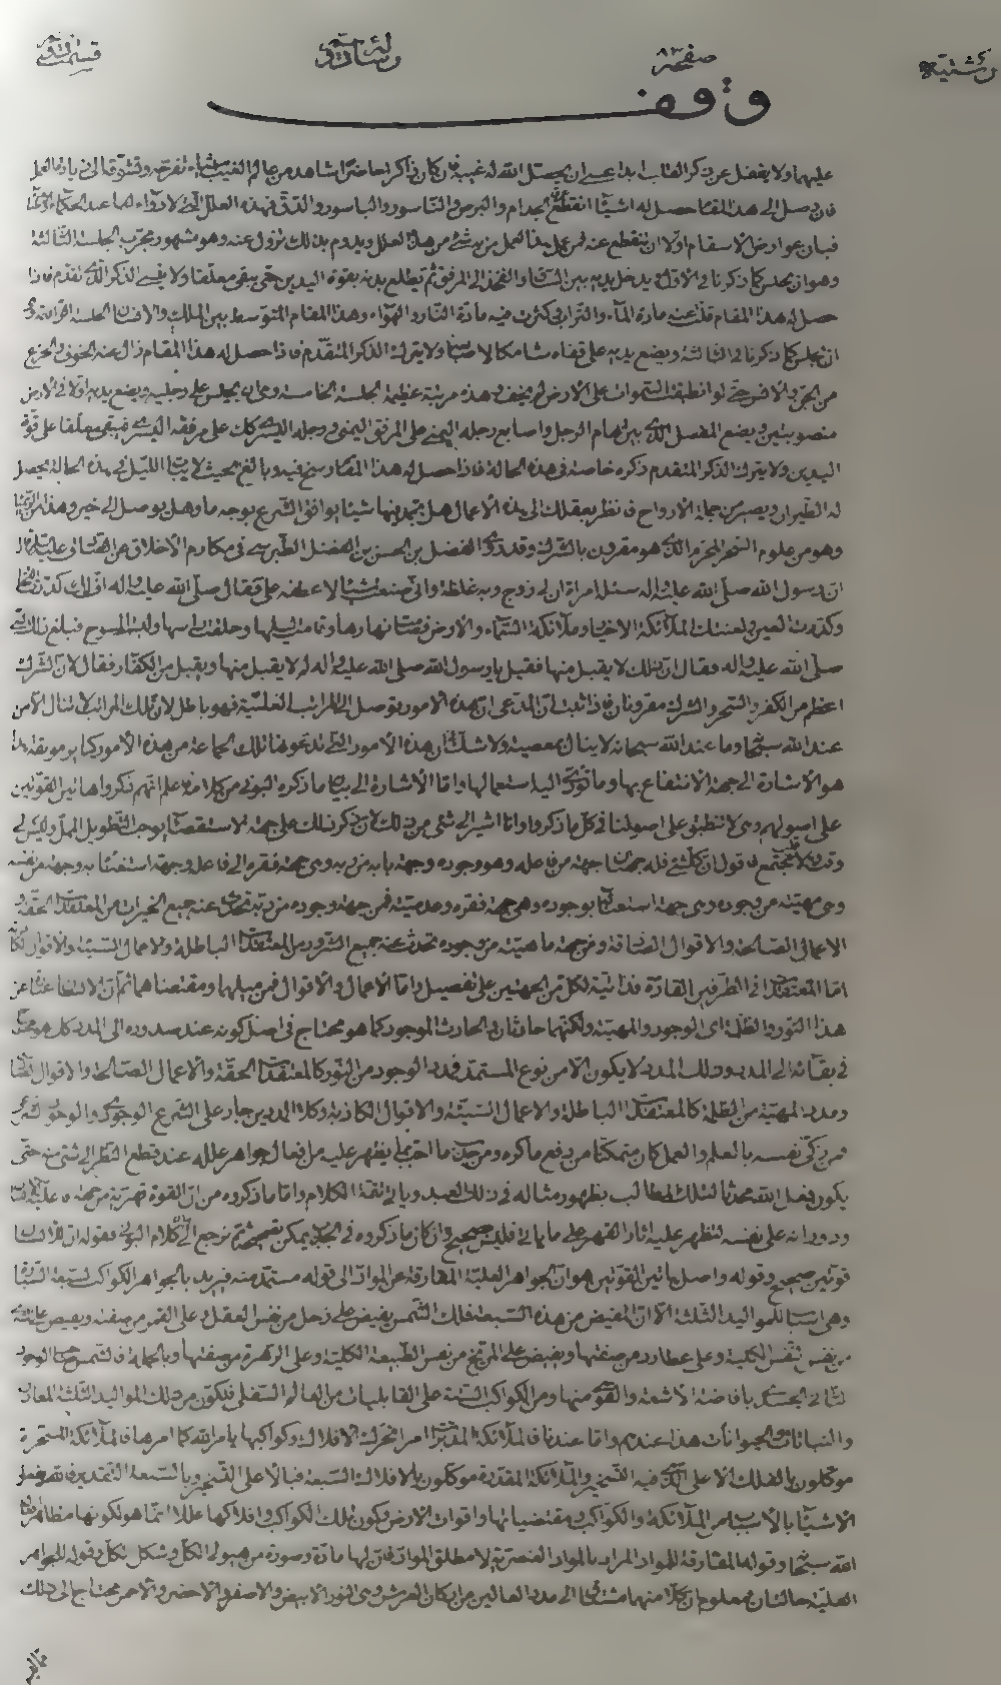 صفحه ۸۳
وقف
عليهما ولا يغفل عن ذكر القلب ابدا عسى ان يحصل الله له غيبة فان كان ذاكرا حاضرا شاهد من عالم الغيب اشياء تفرحه وتشوقه الى زيادة العمل
فان وصل الى هذا المقام حصل له اشياء انقطع الجذام والبرص والناسور والباسور والدق فهذه العلل التى لا دواء لها عند الحكماء
فبان عوارض الاسقام اولا ان تنقطع عنه فمن عمل بهذا العمل من به شئ من هذا العلل ويدوم بذلك تزول عنه وهو مشهور مجرب الجلسة الثالثة
وهو ان يجلس كما ذكرنا فى الاول ويدخل يديه بين الساق والفخذ الى المرفق ثم يطلع بدنه بقوة اليدين حتى يبقى معلقا ولا ينسى الذكر الذى تقدم فاذا
حصل له هذا المقام قلت عنه مادة الماء والتراب وكثرت فيه مادة النار والهواء وهذا المقام المتوسط بين الملك والانسان الجلسة الرابعة
ان يجلس كما ذكرنا فى الثالثة ويضع يديه على قفاه شابكا لاصابعه ولا يترك الذكر المتقدم فاذا حصل له هذا المقام زال عنه الخوف والجزع
من الجن والانس حتى لو انطبقت السموات على الارض لم يخف وهذه مرتبة عظيمة الجلسة الخامسة وهى ان يجلس على رجليه ويضع يديه اولا فى الارض
منصوبتين ويضع المفصل الذى بين ابهام الرجل واصابع رجله اليمنى على المرفق اليمنى ورجله اليسرى كذلك على مرفقه اليسرى فيبقى معلقا على قوة
اليدين ولا يترك الذكر المتقدم ذكره خاصة فى هذه الحالة فاذا حصل له هذا المقام رسخ فيه وبالغ بحيث لا يبات الليل الا فى هذه الحالة يحصل
له الطيران ويصير من جملة الارواح فانظر بعقلك الى هذه الأعمال هل تجد منها شيئا يوافق الشرع بوجه ما وهل يوصل الى خير وهذا من
وهو من علوم السحر المحرم الذى هو مقرون بالشرك وقد روى الفضل بن الحسن بن الفضل الطبرسى فى مكارم الأخلاق عن الصادق عليه السلام
ان رسول الله صلى الله عليه واله سئل امرأة ان لى زوج وبه غلظة وانى صنعت شيئا لاعطفه على فقال صلى الله عليه واله اف لك كدرت
وكدرت العين ولعنتك الملائكة الاخيار وملائكة السماء والارض فصامت نهارها وقامت ليلها وحلقت راسها ولبست المسوح فبلغ ذلك النبى
صلى الله عليه واله فقال ان ذلك لا يقبل منها فقيل يا رسول الله صلى الله عليه واله لم لا يقبل منها ويقبل من الكفار فقال لان الشرك
اعظم من الكفر والسحر والشرك مقرونان فاذا ثبت ان المدعى ان هذه الامور توصل الى المراتب العلية فهو باطل لان تلك المراتب لا تنال الا من
عند الله سبحانه وما عند الله سبحانه لا ينال بمعصية ولا شك ان هذه الامور التى تدعونها تلك الجماعة من هذه الامور كبائر موبقة
هو الاشارة الى جهة الانتفاع بها وما يؤدى اليه استعمالها واما الأشارة الى بيان ما ذكره البونى من كلامه فاعلم انهم ذكروا هاتين القوتين
على اصولهم وهى لا تنطبق على اصولنا فى كل ما ذكروا وانا اشير الى شئ من ذلك لان ذكر ذلك على جهة الاستقصاء يوجب التطويل الممل وليس لى
وقت ولا قلب مجتمع فاقول ان كل شئ فله جهتان جهة من فاعله وهو وجوده وجهة بابه من ربه وهى جهة فقره الى فاعله وجهة استغنائه به وجهة من نفسه
وهى مهيته من وجوده وهى جهة استغنائه بوجوده وهى جهة فقره وعدميته فمن جهة وجوده من ربه تحدث عنه جميع الخيرات من المعتقدات الحقة و
الاعمال الصالحة والاقوال الصادقة ومن جهة ماهيته من وجوده تحدث عنه جميع الشرور من المعتقدات الباطلة والاعمال السيئة والأقوال
اما المعتقدات فى الطرفين القارة فذاتية لكل من الجهتين على تفصيل واما الأعمال والأقوال فمن ميلهما ومقتضاهما ثم ان
هذا النور والظلمة اى الوجود والمهية ولكنهما حادثان والحادث الموجود كما هو محتاج فى اصل كونه عند صدوره الى المدد كذلك هو محتاج
فى بقائه الى المدد وذلك المدد لا يكون الا من نوع المستمد فمدد الوجود من النور كالمعتقدات الحقة والأعمال الصالحة والاقوال
ومدد المهية من الظلمة كالمعتقدات الباطلة والاعمال السيئة والاقوال الكاذبة وكلا المددين جار على الشرع الوجودى والوجود
فمن زكى نفسه بالعلم والعمل كان متمكنا من دفع ما كره ومن جذب ما احب بما يظهر عليه من افعال جواهر علله عند قطع النظر الى شئ منه حتى
يكون فعل الله محدثا لتلك المطالب بظهور مثاله فى ذلك العبد ويأتى تتمة الكلام واما ما ذكروه من ان القوة قهرية من جهة
ودورانه على نفسه لتظهر عليه اثار القهر على ما يأتى فليس بصحيح وان كان ما ذكروه فى الجذب يمكن تصحيحه ثم نرجع الى كلام البونى فقوله ان للانسان
قوتين صحيح وقوله واصل هاتين القوتين هو ان الجواهر العلية المفارقة عن المواد الى قوله مستمد منه فيريد بالجواهر الكواكب السبعة
وهى اسباب للمواليد الثلثة الا ان المفيض من هذه السبعة فلك الشمس يفيض على زحل من نفس العقل وعلى القمر من صفته ويفيض على
من نفس النفس الكلية وعلى عطارد من صفتها ويفيض على المريخ من نفس الطبيعة الكلية وعلى الزهرة من صفتها وبالجملة فالشمس
الثانى الجسدى بافاضة الأشعة والقوى منها ومن الكواكب الستة على القابليات من العالم السفلى فتكون من ذلك المواليد الثلثة المعادن
والنباتات والحيوانات هذا عندهم واما عندنا فالملائكة المدبرات امرا تحرك الافلاك وكواكبها بامر الله كما امرها فالملائكة المسخرة
موكلون بالفلك الأعلى الذى فيه التسخير والملائكة المقدرة موكلون بالافلاك السبعة فبالأعلى التسخير وبالسبعة التقدير فالله
الاشياء بالأسباب من الملائكة والكواكب ومقتضياتها واقوات الارض وكون تلك الكواكب وافلاكها عللا انما هو لكونها مظاهر
الله سبحانه وقوله المفارقة للمواد المراد بالمواد العنصرية لا مطلق المواد فان لها مادة وصورة من هيولى الكل وشكل الكل وقوله الجواهر
العلية حالتان فمعلوم ان كلا منهما محتاج الى مدد العالين من اركان العرش وهى النور الابيض والاصفر والاخضر والاحمر محتاج الى ذلك